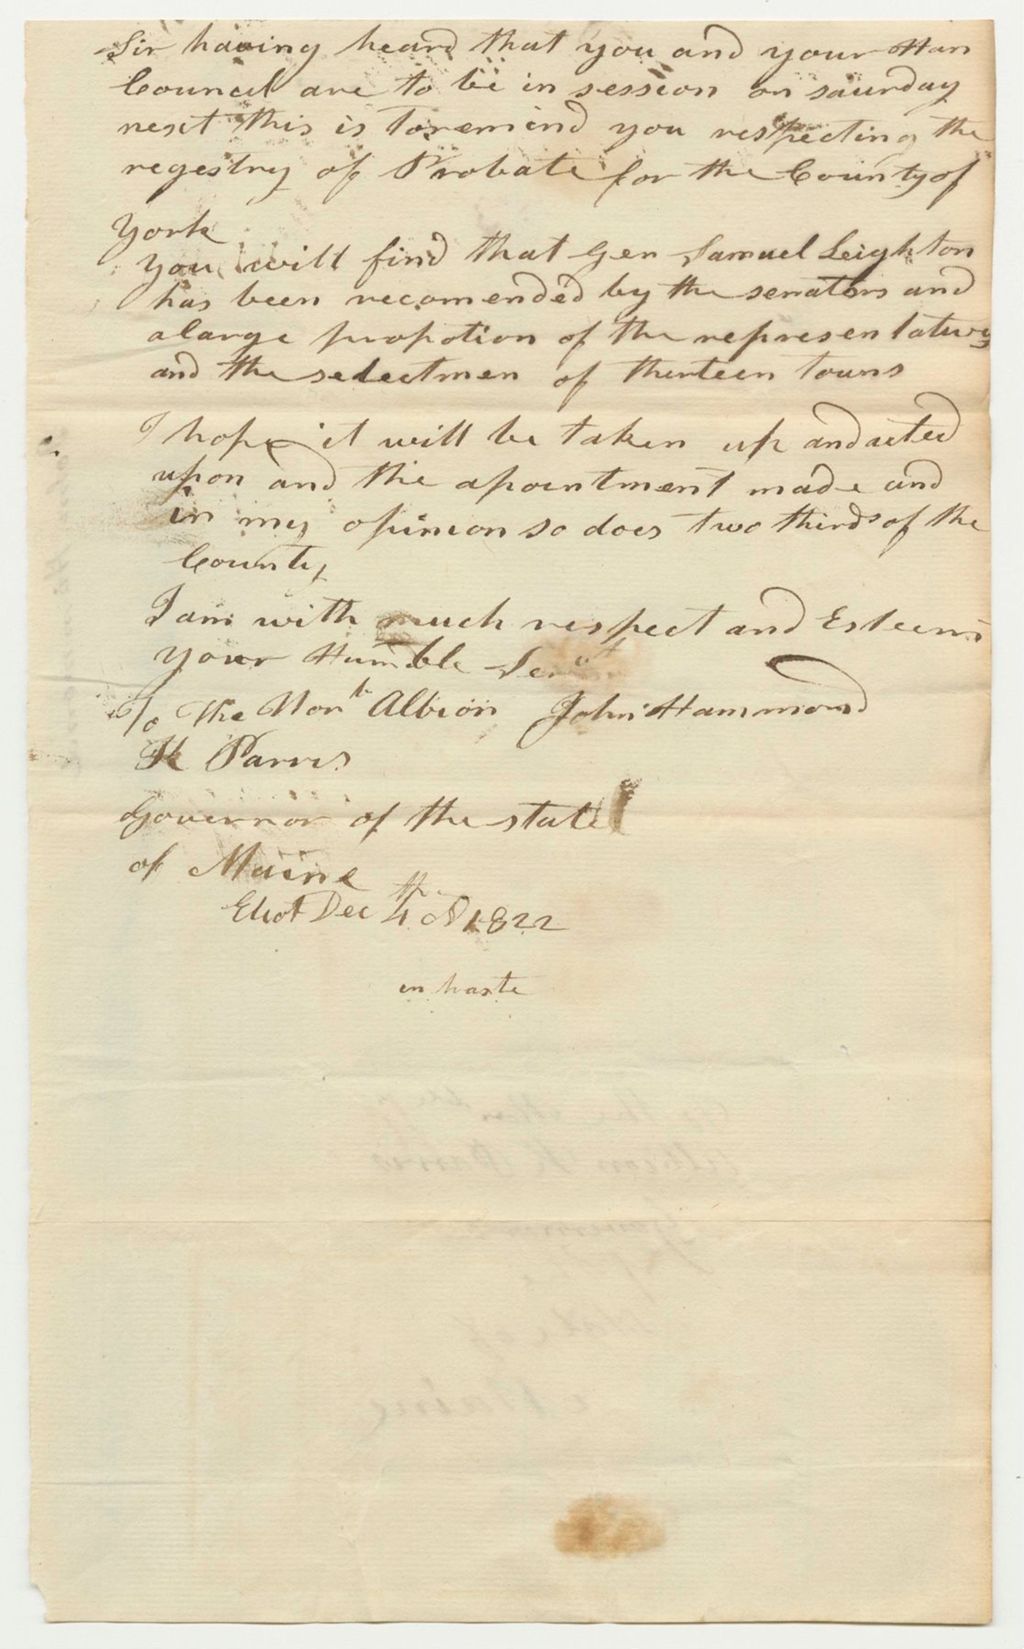 Sir having heard that you and your Hon
Council are to be in session on saurday
next this is to remind you respecting the
regestry of Probate for the County of
York
you will find that Gen Samuel Leighton
has been recomended by the senators and
a large propotion of the representatives
and the selectmen of therteen touns
I hope it will be taken up and acted
upon and the apointment made and
in my opinion so does two thirds of the
County
I am with much respect and Esteem
your Humble Servt
To The Honble Albion John Hammond
K Parris
Governor of the state
of Maine
Eliot Dec 4th AD 1822
in haste
To the Hon
Albion K Parris
Governor
of
Maine